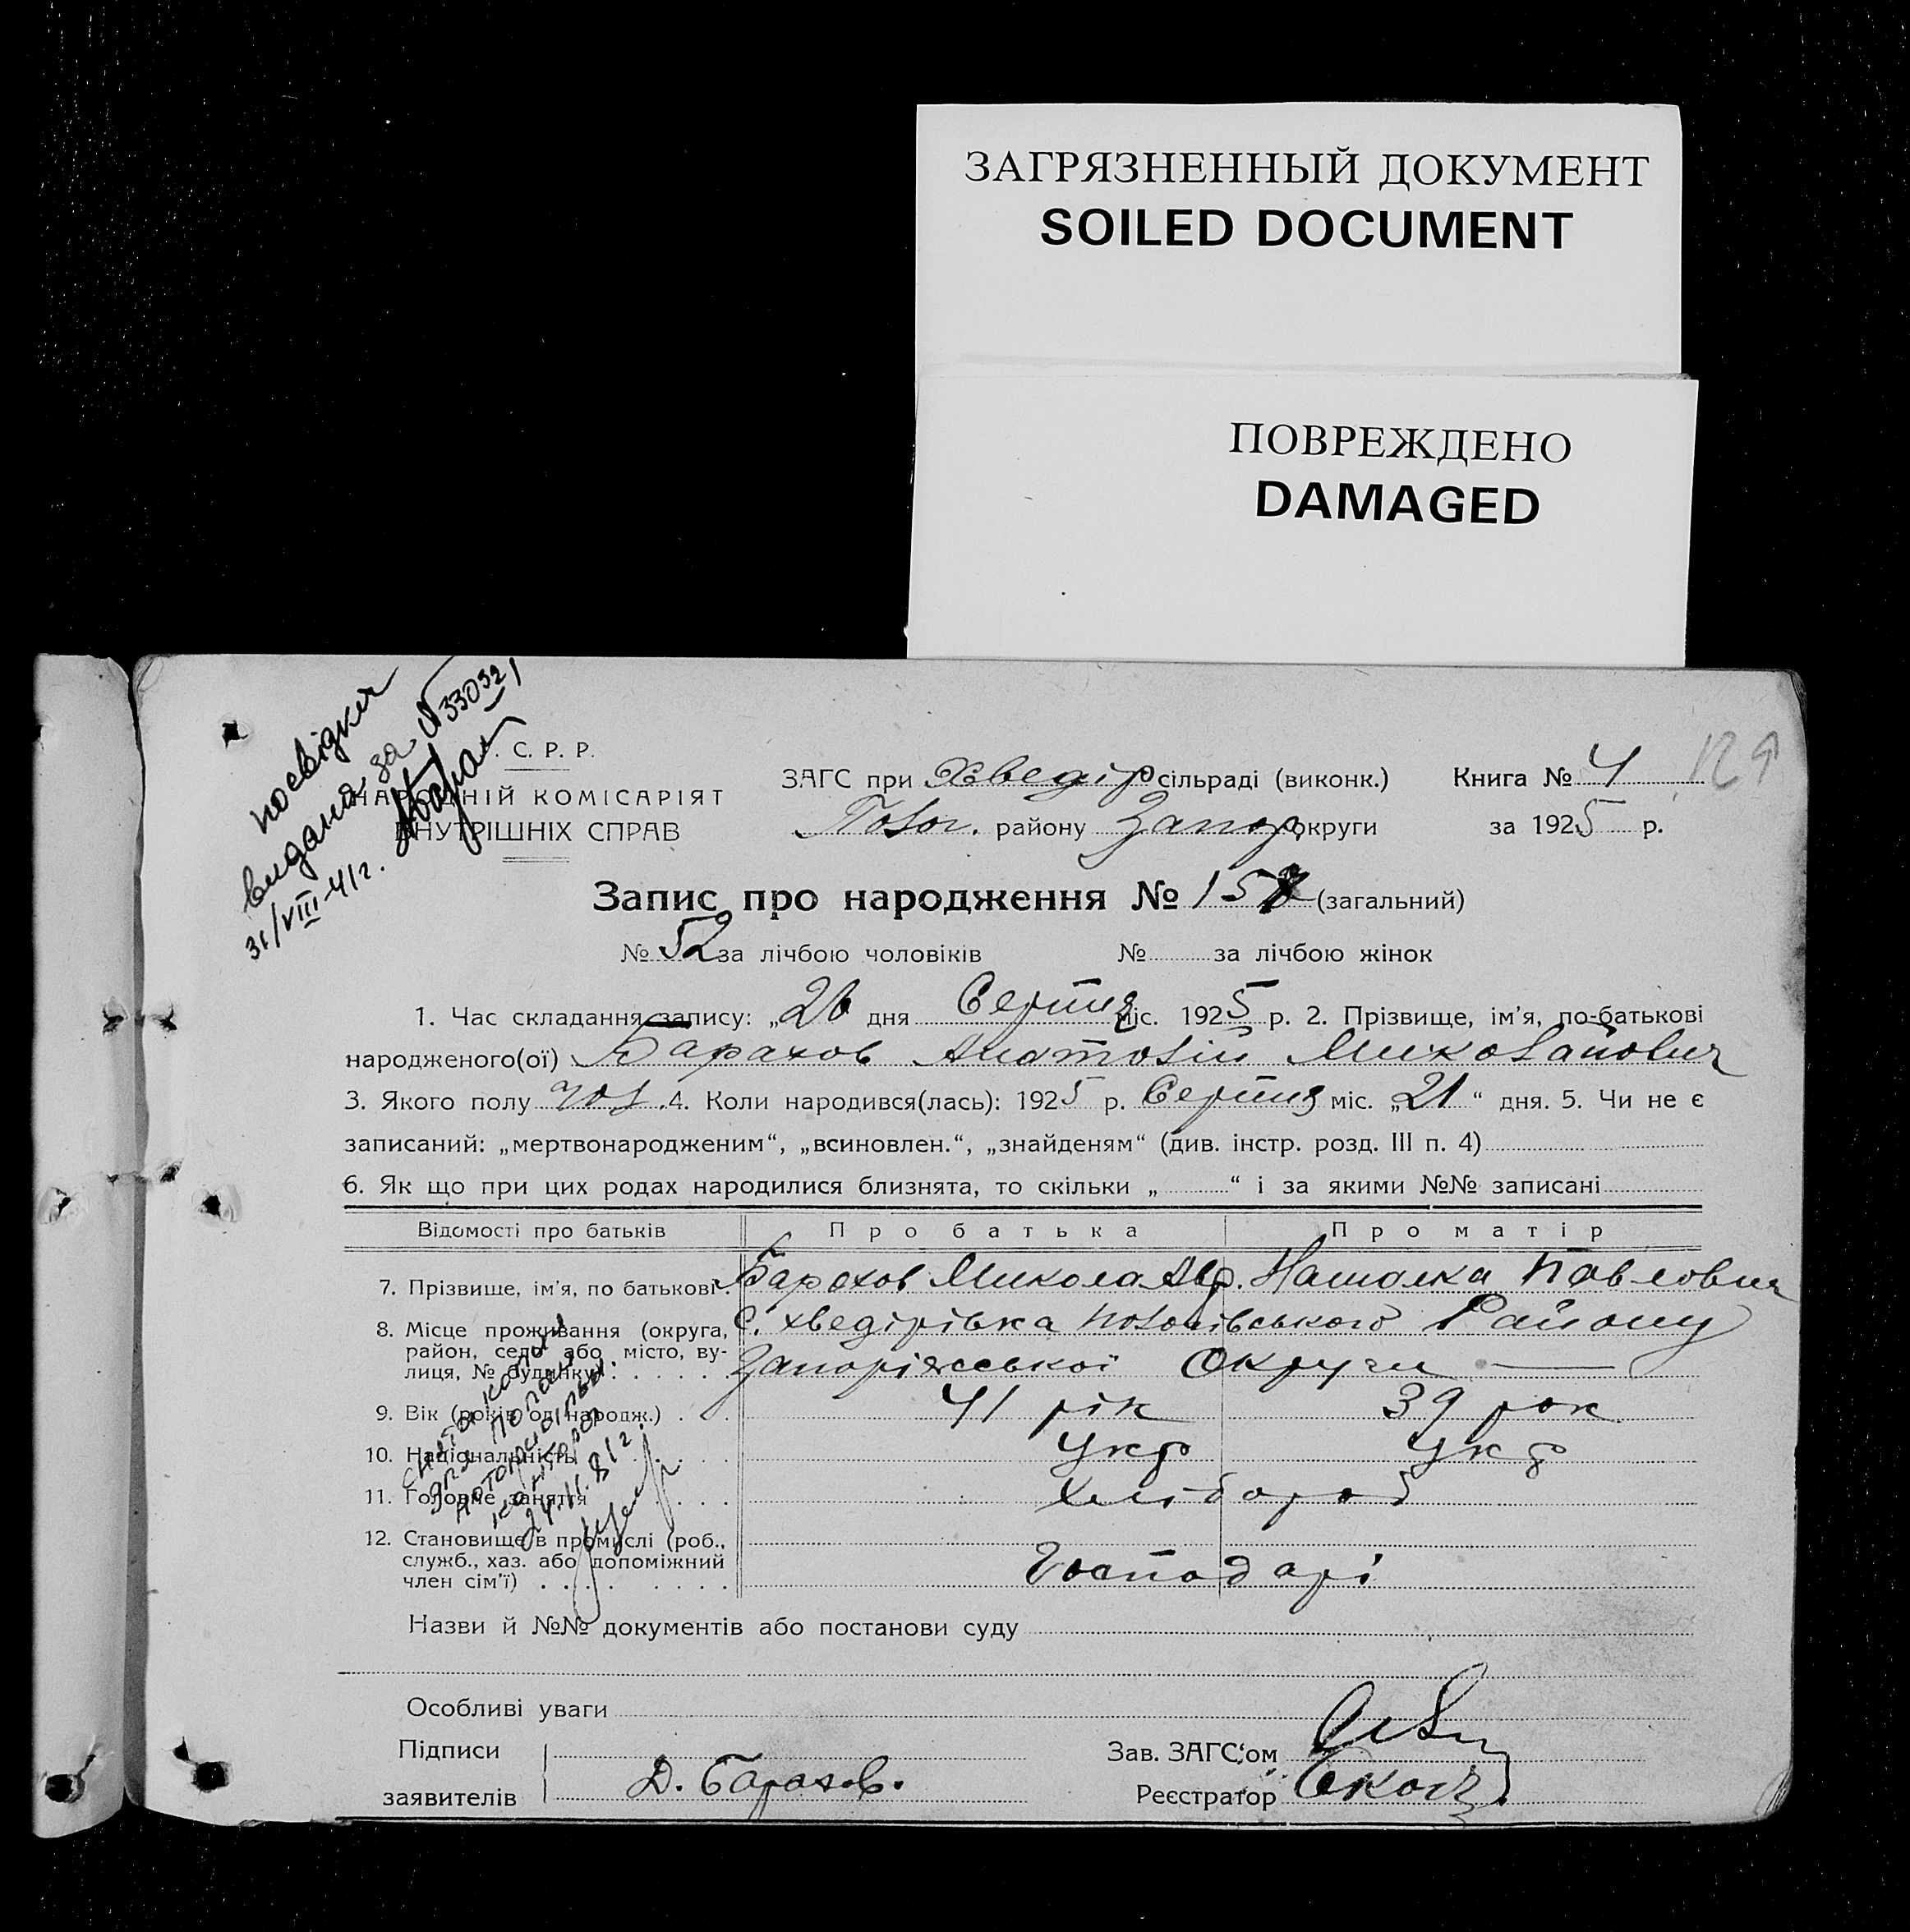 ЗАГРЯЗНЕННЫЙ ДОКУМЕНТ
SOILED DOCUMENT
ПОВРЕЖДЕНО
DAMAGED
посвідки
видана за №33032
31/VIII-41г.
С. Р. Р.
НАРОДНІЙ КОМІСАРІЯТ
ВНУТРІШНІХ СПРАВ
ЗАГС при Хведір сільраді (виконк.) Книга № 4
Полог. району Запор. округи за 1925 р.
Запис про народження № 157 (загальний)
№ 52 за лічбою чоловіків № за лічбою жінок
1. Час складання запису: „26 дня Серпня міс. 1925 р. 2. Прізвище, ім’я, по-батькові
народженого(ої) Барахов Анатолій Миколайович
3. Якого полу чол. 4. Коли народився(лась): 1925 р. Серпня міс. „21“ дня. 5. Чи не є
записаний: „мертвонародженим“, „всиновлен.“, „знайденям“ (див. інстр. розд. III п. 4)
6. Як що при цих родах народилися близнята, то скільки „ “ і за якими №№ записані
Відомості про батьків Про батька Про матір
7. Прізвище, ім’я, по батькові. Барахов Микола Авр. Наталка Павловна
8. Місце проживання (округа, с. Хведірівка Пологівського Району
район, село або місто, ву-
лиця, № будинку) Запоріжської Округи
9. Вік (років од народж.) 41 рік 39 рок
10. Національність Укр Укр
11. Головне заняття Хлібороб
12. Становище в промислі (роб.,
служб., хаз. або допоміжний
член сім’ї) Господарі
снята копия
для Полог
нотариальн.
конторы
24.II.81г.
Назви й №№ документів або постанови суду
Особливі уваги
Підписи Зав. ЗАГС’ом
заявителів Д. Барахов. Реєстратор